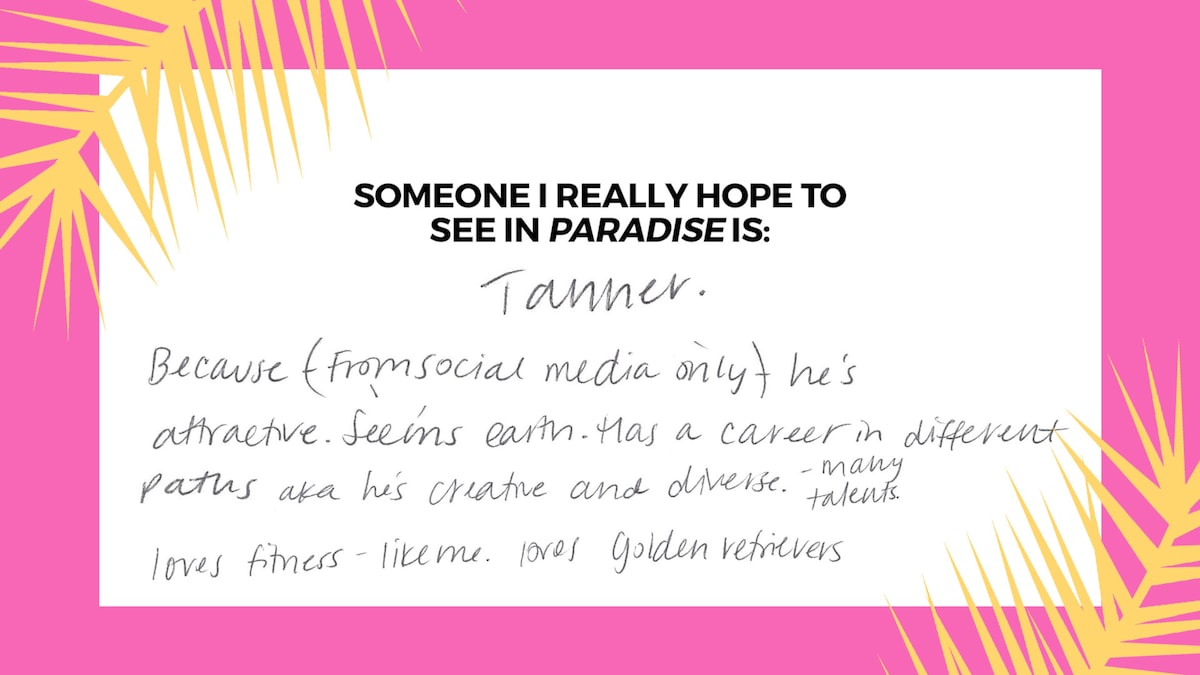 SOMEONE I REALLY HOPE TO
SEE IN PARADISE IS:
Tanner.
Because (From social media only) he's
attractive. Seems earth. Has a career in different
paths aka he's creative and diverse. - many
talents.
loves fitness - like me. loves Golden retrievers